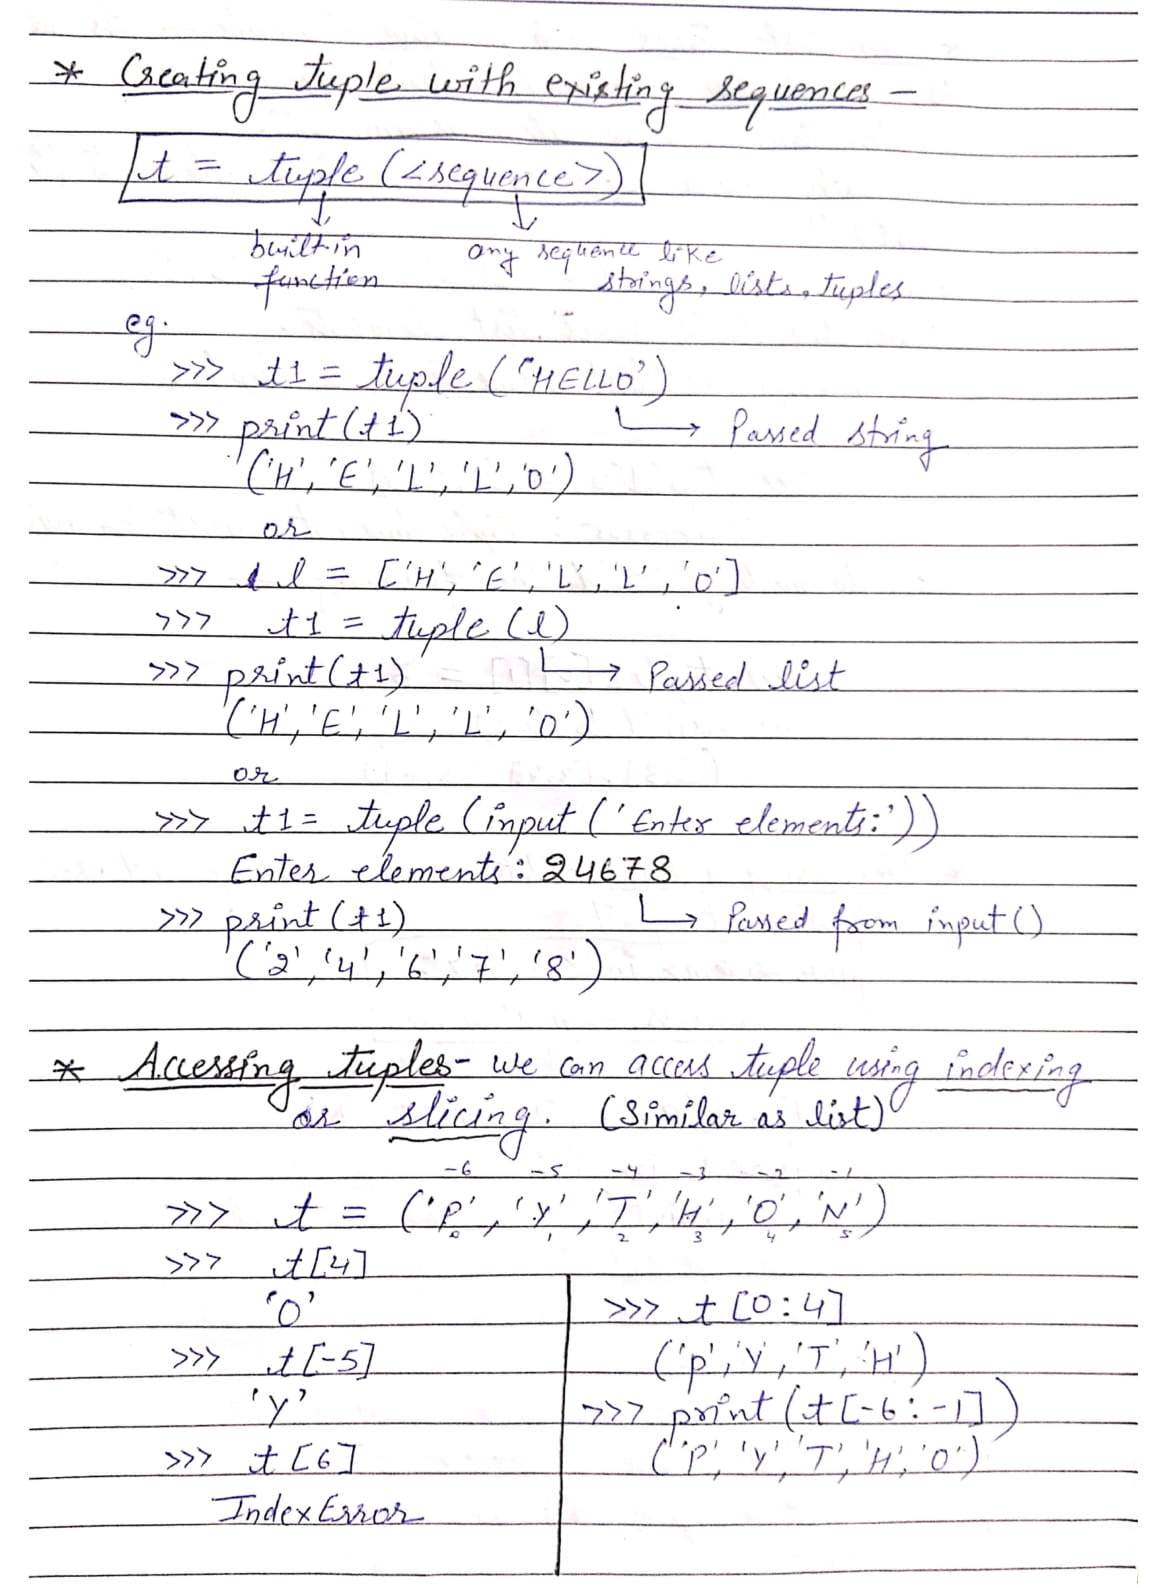 * Creating tuple with existing sequences -
t = tuple (<sequence>)
built-in any sequence like
function strings, lists, tuples
eg.
>>> t1 = tuple ("HELLO')
>>> print(t1) Passed string
('H', 'E', 'L', 'L', 'O')
or
>>> l = ['H', 'E', 'L', 'L', 'O']
>>> t1 = tuple (l)
>>> print(t1) Passed list
('H', 'E', 'L', 'L', 'O')
or
>>> t1 = tuple (input ('Enter elements:'))
Enter elements: 24678
>>> print (t1) Passed from input()
('2', '4', '6', '7', '8')
* Accessing tuples- we can access tuple using indexing
or slicing. (Similar as list)
-6 -5 -4 -3 -2 -1
>>> t = ('P', 'Y', 'T', 'H', 'O', 'N')
0 1 2 3 4 5
>>> t[4]
'O'
>>> t[-5]
'Y'
>>> t[6]
IndexError
>>> t[0:4]
('P', 'Y', 'T', 'H')
>>> print (t[-6:-1])
('P', 'Y', 'T', 'H', 'O')